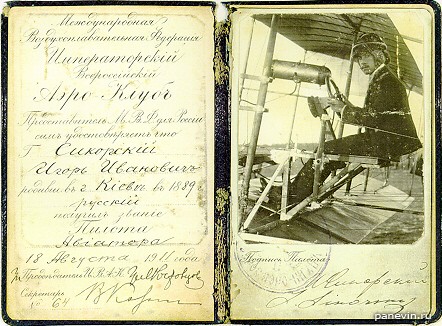 Международная
Воздухоплавательная Федерація
Императорскій
Всероссійскій
Аэро-Клубъ
Представитель М.В.Ф. для Россіи
симъ удостовѣряетъ что
Г. Сикорскій
Игорь Ивановичъ
родивш. въ г. Кіевѣ въ 1889 г.
русскій
получилъ званіе
Пилота
Авіатора
18 Августа 1911 года
Предсѣдатель И.В.А.К.
Секретарь
№ 64
Подпись Пилота
И Сикорский
panevin.ru